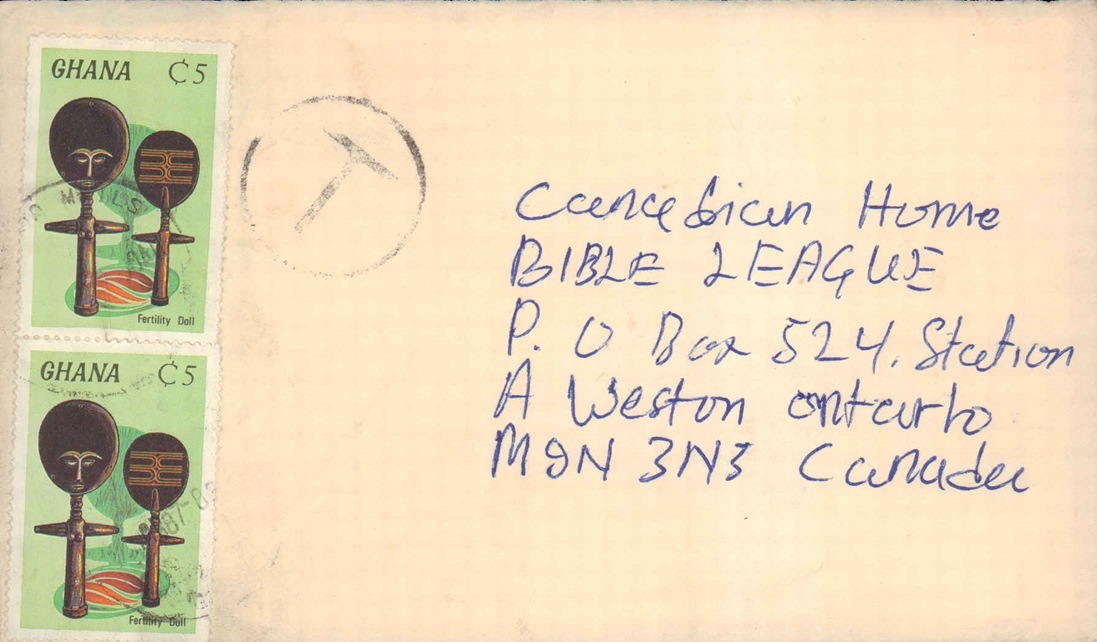 GHANA ₵5
Fertility Doll
GHANA ₵5
Fertility Doll
T
Canadian Home
BIBLE LEAGUE
P. O Box 524, Station
A Weston ontario
M9N 3N3 Canada